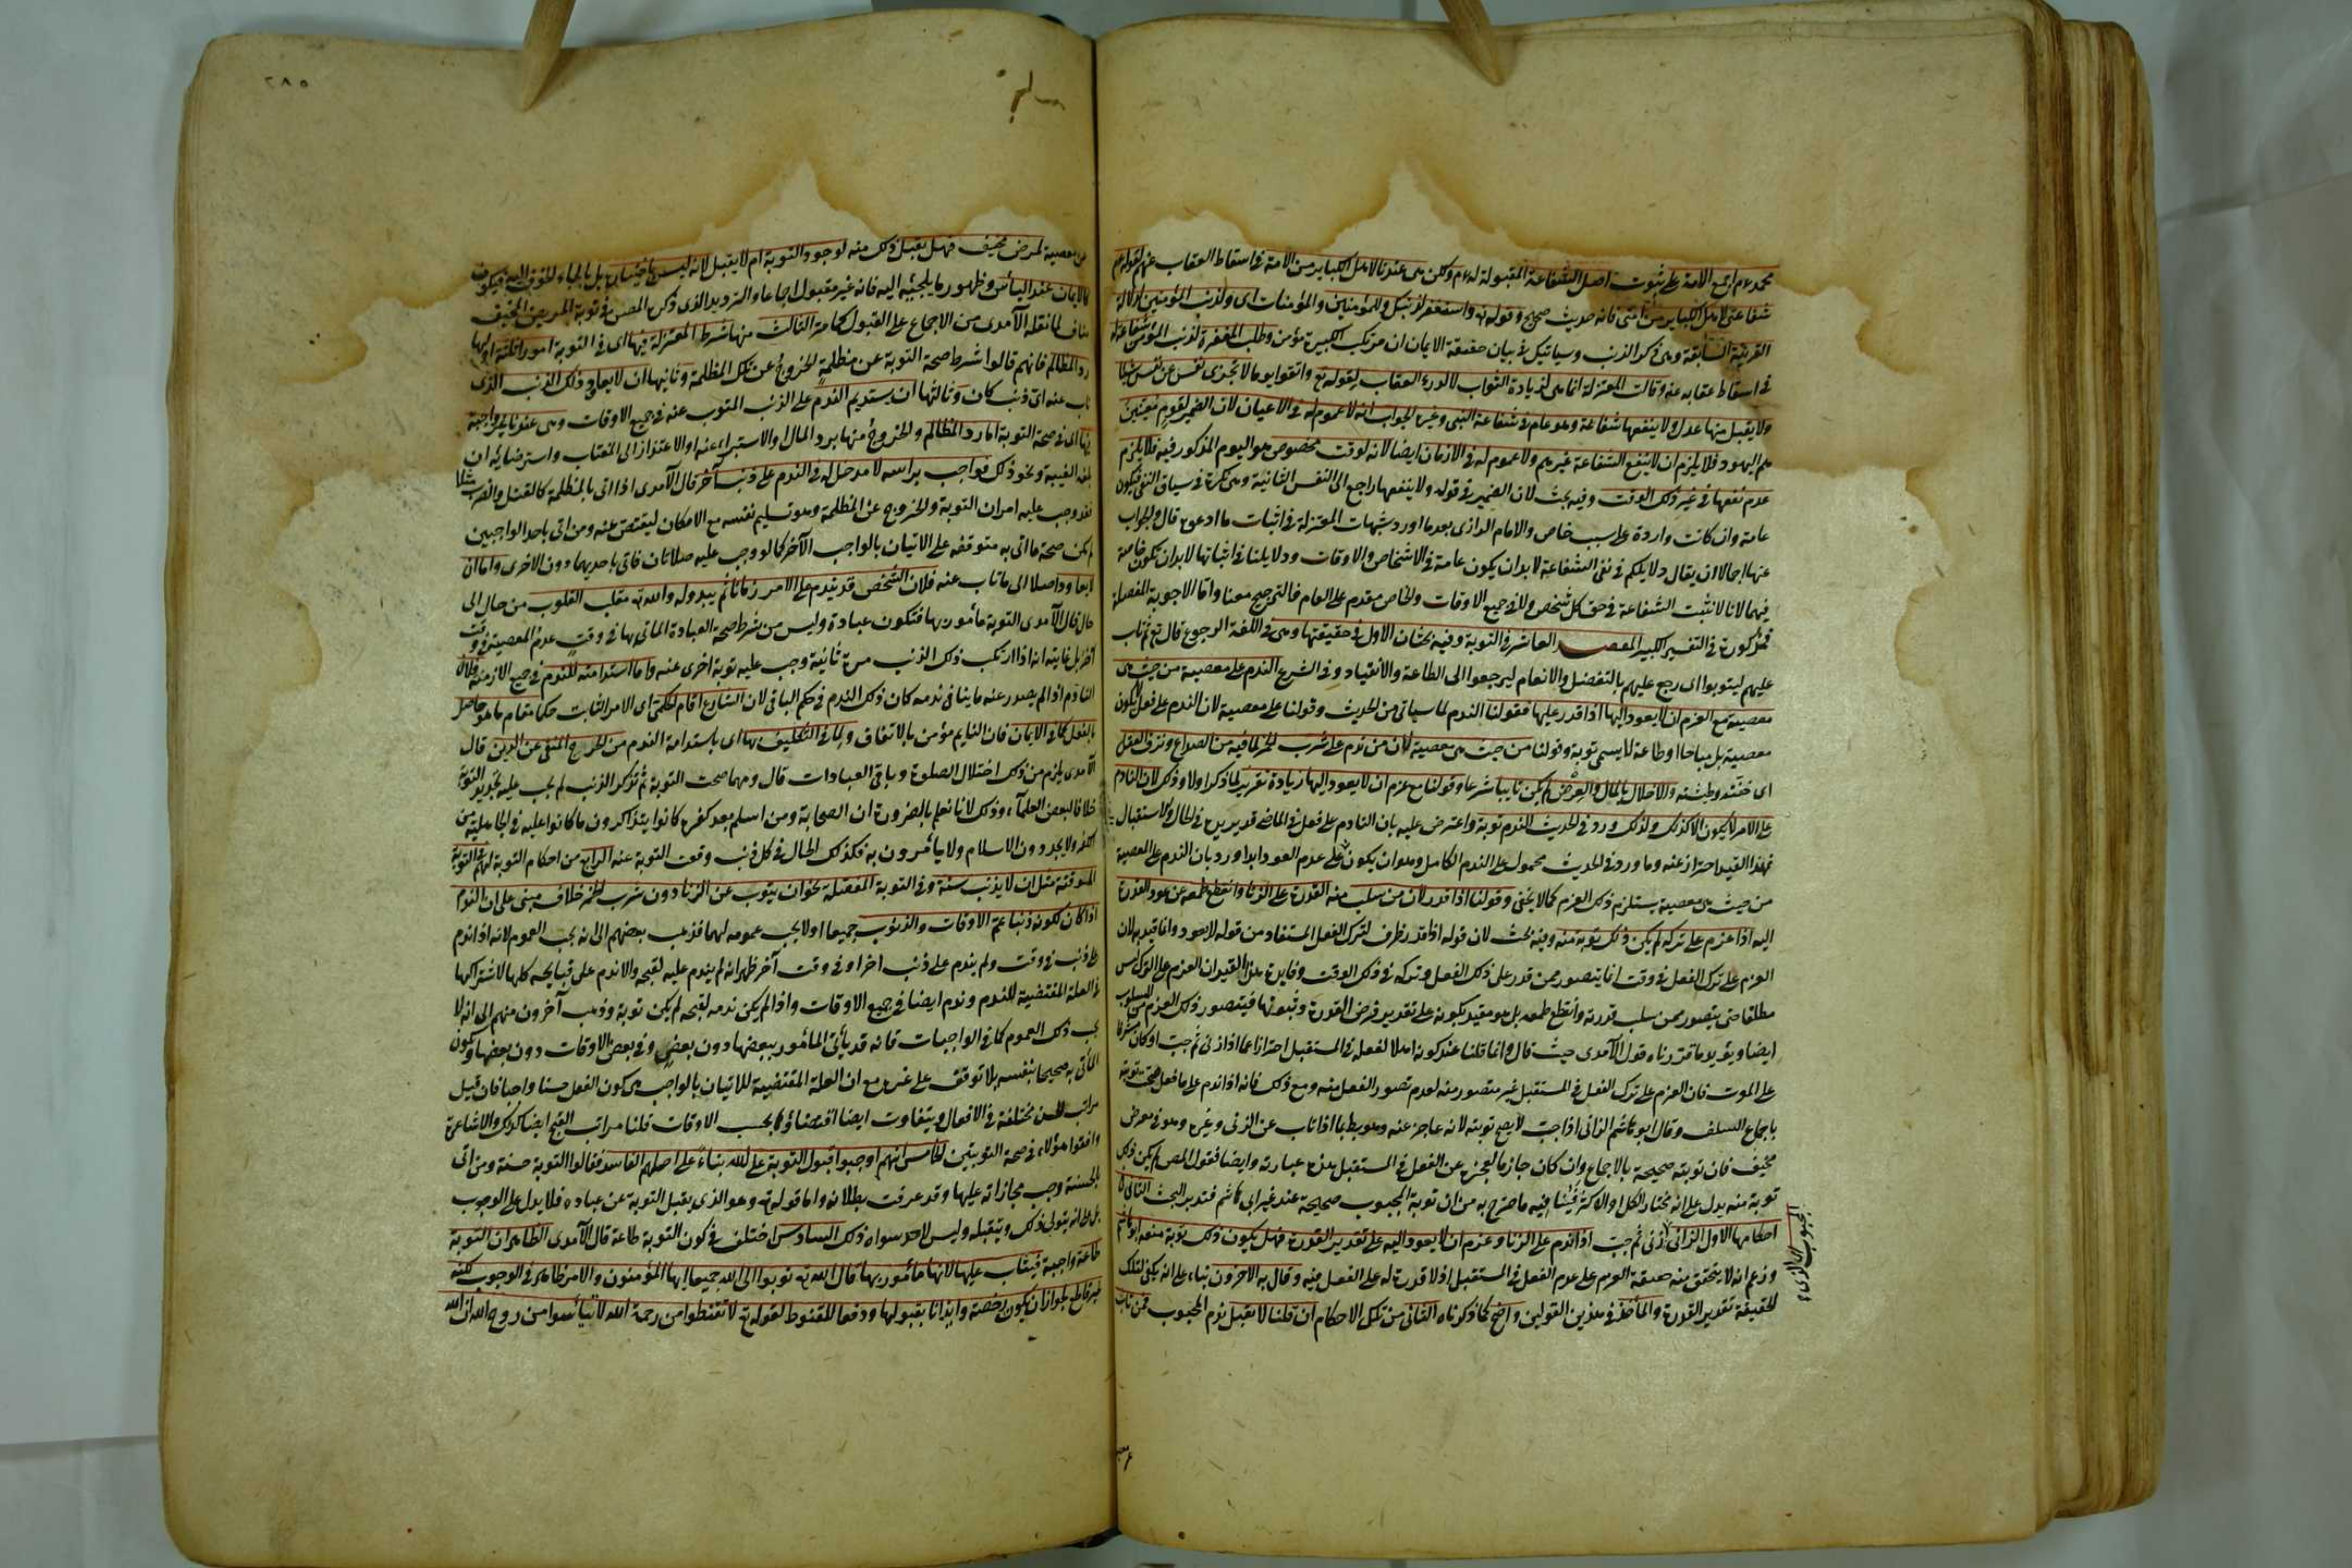 محمد عم اجمع الامة على ثبوت اصل الشفاعة المقبولة له عم ولكن هى عندنا لاهل الكباير من الامة فى اسقاط العقاب عنهم لقوله عم
شفاعتى لاهل الكباير من امتى فانه حديث صحيح وقوله تع واستغفر لذنبك وللمؤمنين والمؤمنات اى ولذنب المؤمنين لدلالة
القرينة السابقة وهى ذكر الذنب وسياتيك فى بيان حقيقة الايمان ان مرتكب الكبيرة مؤمن وطلب المغفرة لذنب المؤمن شفاعة له
فى اسقاط عقابه عنه وقالت المعتزلة انما هى لزيادة الثواب لا لدرء العقاب لقوله تع واتقوا يوما لا تجزى نفس عن نفس شيئا
ولا يقبل منها عدل ولا ينفعها شفاعة وهو عام فى شفاعة النبى وغيره الجواب انه لا عموم له فى الاعيان لان الضمير لقوم معينين
هم اليهود فلا يلزم ان لا ينفع الشفاعة غيرهم ولا عموم له فى الازمان ايضا لانه لوقت مخصوص هو اليوم المذكور فيه فلا يلزم
عدم نفعها فى غير ذلك الوقت وفيه بحث لان الضمير فى قوله ولا ينفعها راجع الى النفس الثانية وهى نكرة فى سياق النفى فيكون
عامة وان كانت واردة على سبب خاص والامام الرازى بعد ما اورد شبهات المعتزلة فى اثبات ما ادعوه قال والجواب
عنها اجمالا ان يقال دلايلكم فى نفى الشفاعة لا بد ان يكون عامة فى الاشخاص والاوقات ودلايلنا فى اثباتها لا بد ان تكون خاصة
فيهما لانا لا نثبت الشفاعة فى حق كل شخص ولا فى جميع الاوقات والخاص مقدم على العام فالترجيح معنا واما الاجوبة المفصلة
فمذكورة فى التفسير الكبير المقصد العاشر فى التوبة وفيه بحثان الاول فى حقيقتها وهى فى اللغة الرجوع قال تع ثم تاب
عليهم ليتوبوا اى رجع عليهم بالتفضل والانعام ليرجعوا الى الطاعة والانقياد وفى الشرع الندم على معصية من حيث هى
معصية مع العزم ان لا يعود اليها اذا قدر عليها فقولنا الندم لما سياتى من الحديث وقولنا على معصية لان الندم على فعل لا يكون
معصية بل مباحا او طاعة لا يسمى توبة وقولنا من حيث هى معصية لان من ندم على شرب الخمر لما فيه من الصداع ونزف العقل
اى خفته وطيشه والاخلال بالمال والعرض لم يكن تايبا شرعا وقولنا مع عزم ان لا يعود اليها زيادة تقرير لما ذكر اولا وذلك لان النادم
على الامر لا يكون الا كذلك ولذلك ورد فى الحديث الندم توبة واعترض عليه بان النادم على فعل فى الماضى قد يريده فى الحال والاستقبال
فهذا القيد احتراز عنه وما ورد فى الحديث محمول على الندم الكامل وهو ان يكون على عدم العود ابدا ورد بان الندم على المعصية
من حيث هى معصية يستلزم ذلك العزم كما لا يخفى وقولنا اذا قدر لان من سلب منه القدرة على الزنا وانقطع طمعه عن عود القدرة
اليه اذا عزم على تركه لم يكن ذلك توبة منه وفيه بحث لان قوله اذا قدر ظرف لترك الفعل المستفاد من قوله لا يعود وانما قيد به لان
العزم على ترك الفعل فى وقت انما يتصور ممن قدر على ذلك الفعل وتركه فى ذلك الوقت وفايدة هذا القيد ان العزم على الترك ليس
مطلقا حتى يتصور ممن سلب قدرته وانقطع طمعه بل هو مقيد بكونه على تقدير فرض القدرة وثبوتها فيتصور ذلك العزم من المسلوب
ايضا ويؤيد ما قررناه قول الآمدى حيث قال وانما قلنا عند كونه اهلا لفعله فى المستقبل احترازا عما اذا زنى ثم جب او كان مشرفا
على الموت فان العزم على ترك الفعل فى المستقبل غير متصور منه لعدم تصور الفعل منه ومع ذلك فانه اذا ندم على ما فعل صحت توبته
باجماع السلف وقال ابو هاشم الزانى اذا جب لا يصح توبته لانه عاجز عنه وهو يبطل بما اذا تاب عن الزنى وغيره وهو فى مرض
مخيف فان توبته صحيحة بالاجماع وان كان جازما بعجزه عن الفعل فى المستقبل هذه عبارته وايضا فقول المص لم يكن ذلك
توبة منه يدل على انه مختار الكل او الاكثر فينافيه ما صرح به من ان توبة المجبوب صحيحة عند غير ابى هاشم فتدبر البحث الثانى فى
احكامها الاول الزانى اذا زنى ثم جب اذا ندم على الزنا وعزم ان لا يعود اليه على تقدير القدرة فهل يكون ذلك توبة منعه ابو هاشم
وزعم انه لا يتحقق منه حقيقة العزم على عدم الفعل فى المستقبل اذ لا قدرة له على الفعل فيه وقال به الآخرون بناء على انه يكفى لتلك
الحقيقة تقدير القدرة والمأخذ فى هذين القولين واضح كما ذكرناه الثانى من تلك الاحكام ان قلنا لا يقبل ندم المجبوب فمن تاب
المجبوب اى الذى
٢٨٥
عن معصية لمرض مخيف فهل يقبل ذلك منه لوجود التوبة ام لا يقبل لانه ليس باختياره بل بالجاء الخوف اليه فيكون
كالايمان عند اليأس وظهور ما يلجئه اليه فانه غير مقبول اجماعا والترديد الذى ذكره المص فى توبة المريض المخيف
مناف لما نقله الآمدى من الاجماع على القبول كما مر الثالث منها شرط المعتزلة فيها اى فى التوبة امورا ثلثة اولها
رد المظالم فانهم قالوا شرط صحة التوبة عن مظلمة الخروج عن تلك المظلمة وثانيها ان لا يعاود ذلك الذنب الذى
تاب عنه اى ذنب كان وثالثها ان يستديم الندم على الذنب المتوب عنه فى جميع الاوقات وهى عندنا غير واجبة
فيها اى فى صحة التوبة اما رد المظالم والخروج منها برد المال او الاستبراء عنه او الاعتذار الى المغتاب واسترضائه ان
بلغه الغيبة ونحو ذلك فواجب براسه لا مدخل له فى الندم على ذنب آخر قال الآمدى اذا اتى بالمظلمة كالقتل والضرب مثلا
فقد وجب عليه امران التوبة والخروج عن المظلمة وهو تسليم نفسه مع الامكان ليقتص منه ومن اتى باحد الواجبين
لم يكن صحة ما اتى به متوقفة على الاتيان بالواجب الآخر كما لو وجب عليه صلاتان فاتى باحديهما دون الاخرى واما ان
لا يعاود اصلا الى ما تاب عنه فلان الشخص قد يندم على الامر زمانا ثم يبدو له والله تع مقلب القلوب من حال الى
حال قال الآمدى التوبة مأمور بها فتكون عبادة وليس من شرط صحة العبادة الماتى بها فى وقت عدم المعصية فى وقت
آخر بل غايته انه اذا ارتكب ذلك الذنب مرة ثانية وجب عليه توبة اخرى عنه واما استدامته للندم فى جميع الازمنة فلان
النادم اذا لم يصدر عنه ما ينافى ندمه كان ذلك الندم فى حكم الباقى لان الشارع اقام الحكمى اى الامر الثابت حكما مقام ما هو حاصل
بالفعل كما فى الايمان فان النايم مؤمن بالاتفاق ولما فى التكليف بها اى باستدامة الندم من الحرج المنفى عن الدين قال
الآمدى يلزم من ذلك اختلال الصلوة وباقى العبادات قال ومهما صحت التوبة ثم تذكر الذنب لم يجب عليه تجديد التوبة
خلافا لبعض العلماء وذلك لانا نعلم بالضرورة ان الصحابة ومن اسلم بعد كفره كانوا يتذاكرون ما كانوا عليه فى الجاهلية من
الكفر ولا يجددون الاسلام ولا يأمرون به فكذلك الحال فى كل ذنب وقعت التوبة عنه الرابع من احكام التوبة لهم فى التوبة
الموقتة مثل ان لا يذنب سنة وفى التوبة المفصلة نحو ان يتوب عن الزنا دون شرب الخمر خلاف مبنى على ان الندم
اذا كان لكونه ذنبا عم الاوقات والذنوب جميعا او لا يجب عمومه لهما فذهب بعضهم الى انه يجب العموم لانه اذا ندم
على ذنب فى وقت ولم يندم على ذنب اخر او فى وقت آخر ظهر انه لم يندم عليه لقبحه والا ندم على قبايحه كلها لاشتراكها
فى العلة المقتضية للندم وندم ايضا فى جميع الاوقات واذا لم يكن ندمه لقبحه لم يكن توبة وذهب آخرون منهم الى انه لا
يجب ذلك العموم كما فى الواجبات فانه قد يأتى المأمور ببعضها دون بعض وفى بعض الاوقات دون بعضها ويكون
المأتى به صحيحا بنفسه بلا توقف على غيره مع ان العلة المقتضية للاتيان بالواجب هى كون الفعل حسنا واجبا فان قيل
مراتب الحسن مختلفة فى الافعال ويتفاوت ايضا اقتضاؤها بحسب الاوقات قلنا مراتب القبح ايضا كذلك والاشاعرة
وافقوا هؤلاء فى صحة التوبتين الخامس انهم اوجبوا قبول التوبة على الله بناء على اصلهم الفاسد فقالوا التوبة حسنة ومن اتى
بالحسنة وجب مجازاته عليها وقد عرفت بطلانه واما قوله تع وهو الذى يقبل التوبة عن عباده فلا يدل على الوجوب
بل على انه يتولى ذلك ويتقبله وليس لاحد سواه ذلك السادس اختلف فى كون التوبة طاعة قال الآمدى الظاهر ان التوبة
طاعة واجبة فيثاب عليها لانها مأمور بها قال الله تع توبوا الى الله جميعا ايها المؤمنون والامر ظاهر فى الوجوب لكنه
غير قاطع لجواز ان يكون رخصة وايذانا بقبولها ودفعا للقنوط لقوله تع لا تقنطوا من رحمة الله لا تيأسوا من روح الله ان الله